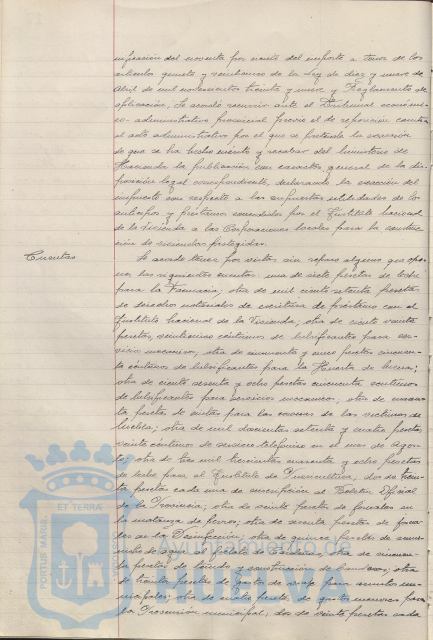 nificación del noventa por ciento del importe a tenor de los
artículos quinto y veintiunco de la Ley de diez y nueve de
abril de mil novecientos treinta y nueve y Reglamento de
aplicación, Se acordó recurrir ante el Tribunal económi-
co-administrativo provincial previo el de reposición contra
el acto administrativo por el que se pretende la exacción
de que se ha hecho mérito y recabar del Ministerio de
Hacienda la publicación con carácter general de la dis-
posición legal correspondiente, declarando la exención del
impuesto con respecto a las supuestas utilidades de los
anticipos y préstamos concedidos por el Instituto Nacional
de la Vivienda a las Corporaciones locales para la construc-
ción de viviendas protegidas.
Cuentas
Se acordó tener por vistas, sin reparo alguno que opo-
ner, las siguientes cuentas: una de siete pesetas de leche
para la Farmacia; otra de mil ciento setenta pesetas
de derechos notariales de escritura de préstamo con el
Instituto Nacional de la Vivienda; otra de ciento veinte
pesetas, céntimos de lubrificantes para ser-
vicio mecanico; otra de cincuenta y nueve pesetas cincuen-
ta céntimos de lubrificantes para la Huerta de
otra de ciento sesenta y ocho pesetas cincuenta céntimos
de lubrificantes para servicios mecanicos; otra de
ta pesetas de para las de las victimas de
otra de mil doscientas setenta y cuatro pesetas
veinte céntimos de servicio telefónico en el mes de Agos-
to; otra de tres mil trescientas cuarenta y ocho pesetas
de leche para el Instituto de Puericultura; dos de trein-
ta pesetas cada una de suscripción al Boletin Oficial
de la Provincia; otra de veinte pesetas de jornales en
la matanza de perros; otra de sesenta pesetas de
de Desinfección; otra de quince pesetas de
de agua al
pesetas de y construcción de otra
de treinta pesetas de gastos de viaje para asuntos mu-
nicipales; otra de pesetas de gastos menores para
la Prevención municipal; dos de veinte pesetas cada
PORTUS MARIS
ET TERRA
Ayuntamiento de